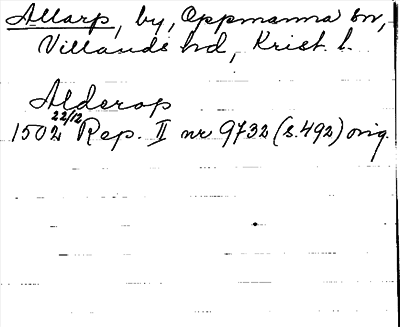 Allarp, by, Oppmanna sn,
Villands hd, Krist. l.
Alderop
1502 22/12 Rep. II nr 9732 (s. 492) orig.